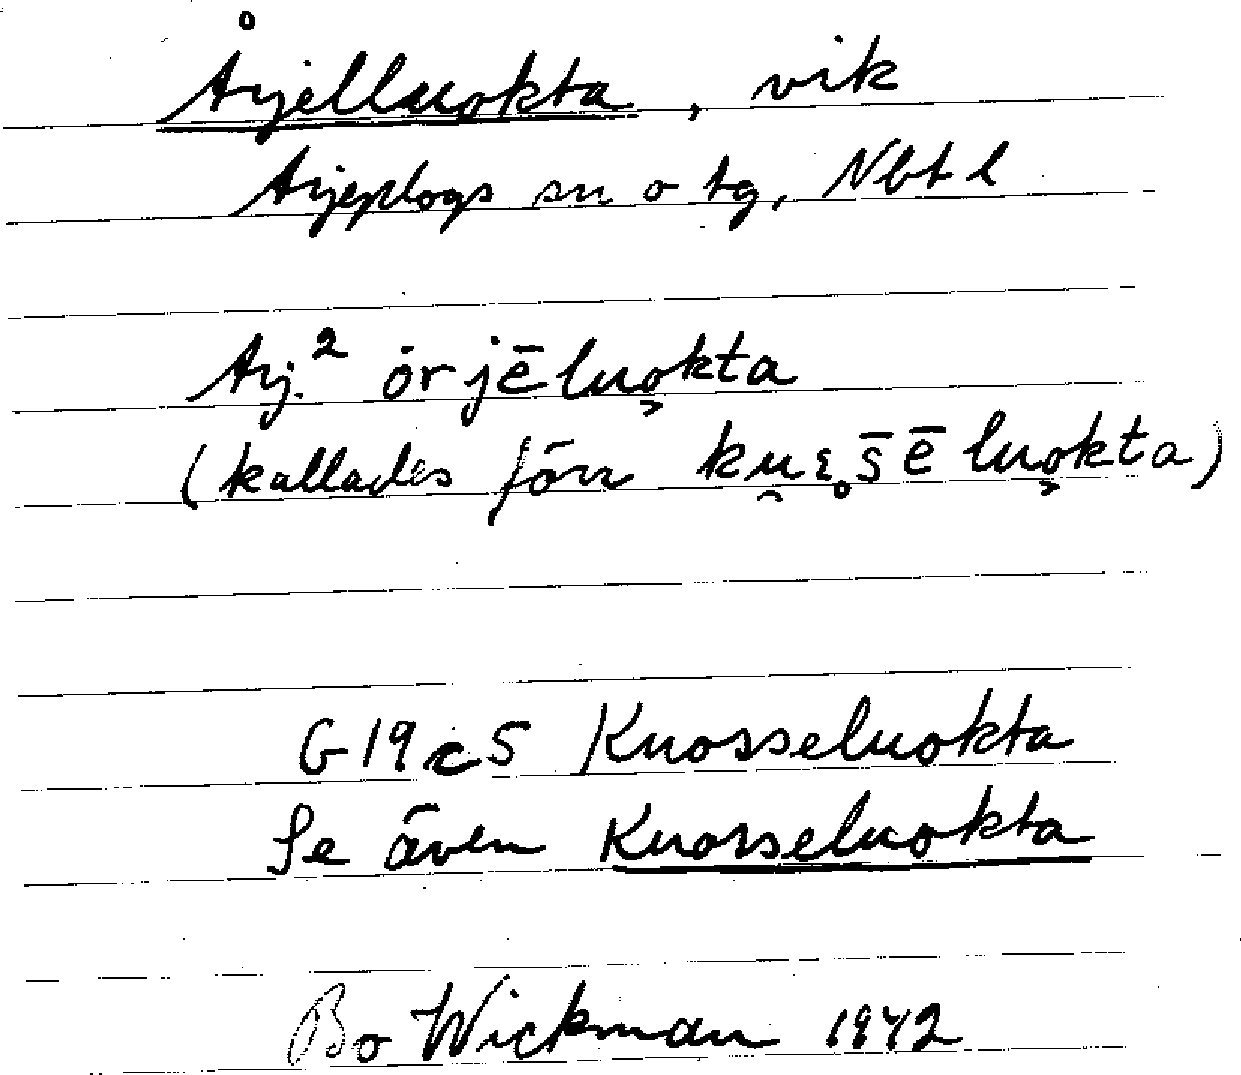 Årjelluokta, vik
Arjeplogs sn o tg, Nbt l
Arj.² órjēluo̭kta
(kallades förr
G19c5 Kuosseluokta
Se även Kuosseluokta
Bo Wickman 1942